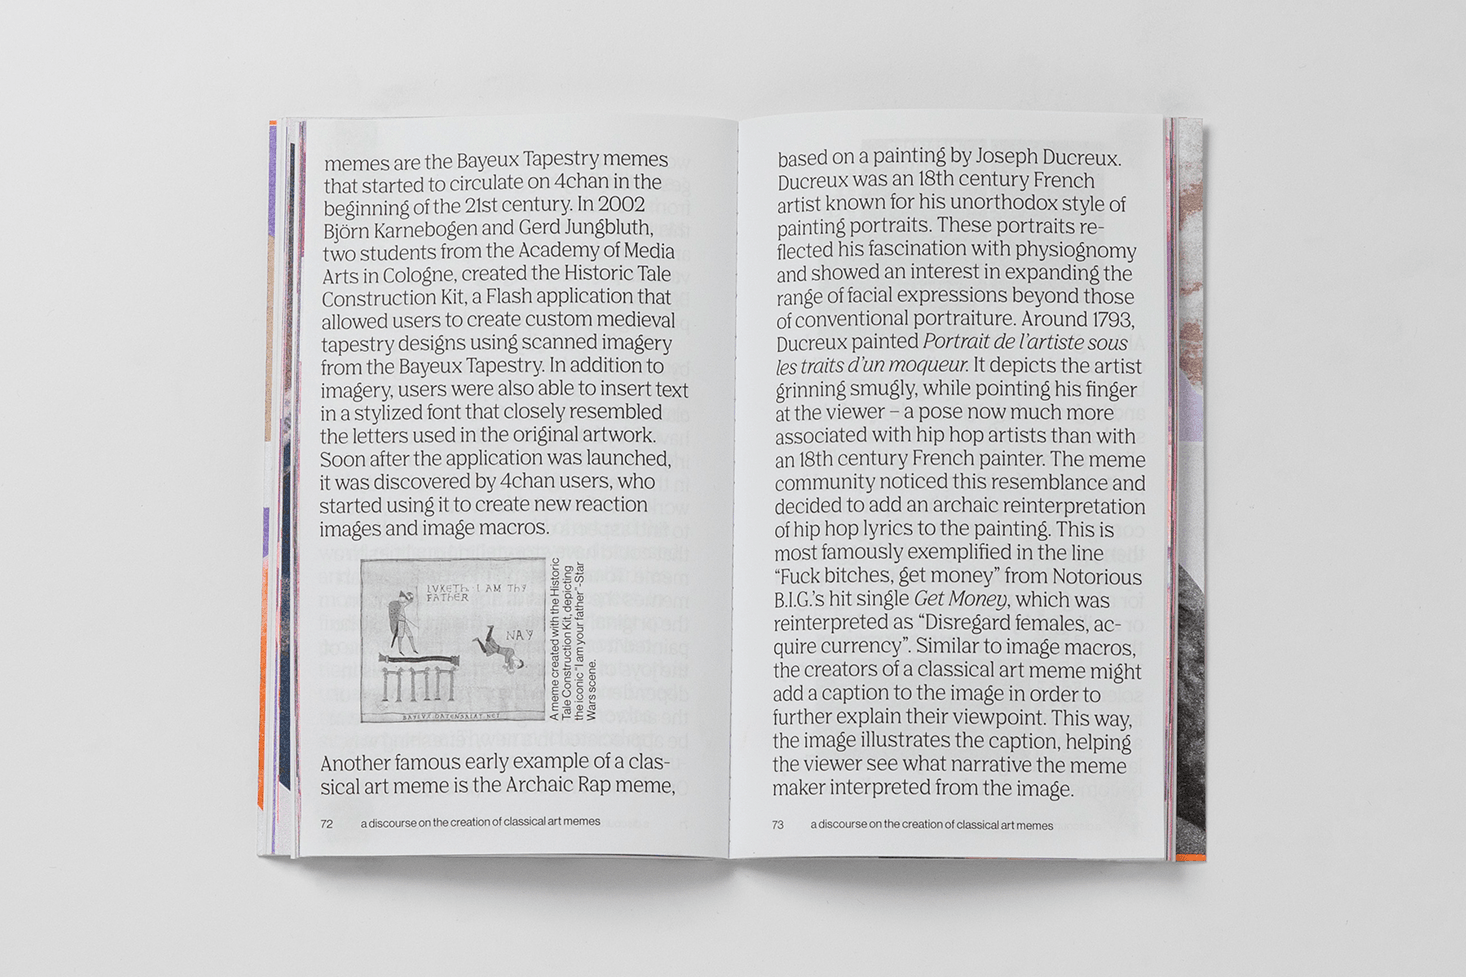 memes are the Bayeux Tapestry memes
that started to circulate on 4chan in the
beginning of the 21st century. In 2002
Björn Karnebogen and Gerd Jungbluth,
two students from the Academy of Media
Arts in Cologne, created the Historic Tale
Construction Kit, a Flash application that
allowed users to create custom medieval
tapestry designs using scanned imagery
from the Bayeux Tapestry. In addition to
imagery, users were also able to insert text
in a stylized font that closely resembled
the letters used in the original artwork.
Soon after the application was launched,
it was discovered by 4chan users, who
started using it to create new reaction
images and image macros.
IVKETH· I AM THY
FATHER
NAY
A meme created with the Historic
Tale Construction Kit, depicting
the iconic "I am your father"-Star
Wars scene.
Another famous early example of a clas-
sical art meme is the Archaic Rap meme,
72 a discourse on the creation of classical art memes
based on a painting by Joseph Ducreux.
Ducreux was an 18th century French
artist known for his unorthodox style of
painting portraits. These portraits re-
flected his fascination with physiognomy
and showed an interest in expanding the
range of facial expressions beyond those
of conventional portraiture. Around 1793,
Ducreux painted Portrait de l'artiste sous
les traits d'un moqueur. It depicts the artist
grinning smugly, while pointing his finger
at the viewer – a pose now much more
associated with hip hop artists than with
an 18th century French painter. The meme
community noticed this resemblance and
decided to add an archaic reinterpretation
of hip hop lyrics to the painting. This is
most famously exemplified in the line
“Fuck bitches, get money” from Notorious
B.I.G.’s hit single Get Money, which was
reinterpreted as “Disregard females, ac-
quire currency”. Similar to image macros,
the creators of a classical art meme might
add a caption to the image in order to
further explain their viewpoint. This way,
the image illustrates the caption, helping
the viewer see what narrative the meme
maker interpreted from the image.
73 a discourse on the creation of classical art memes